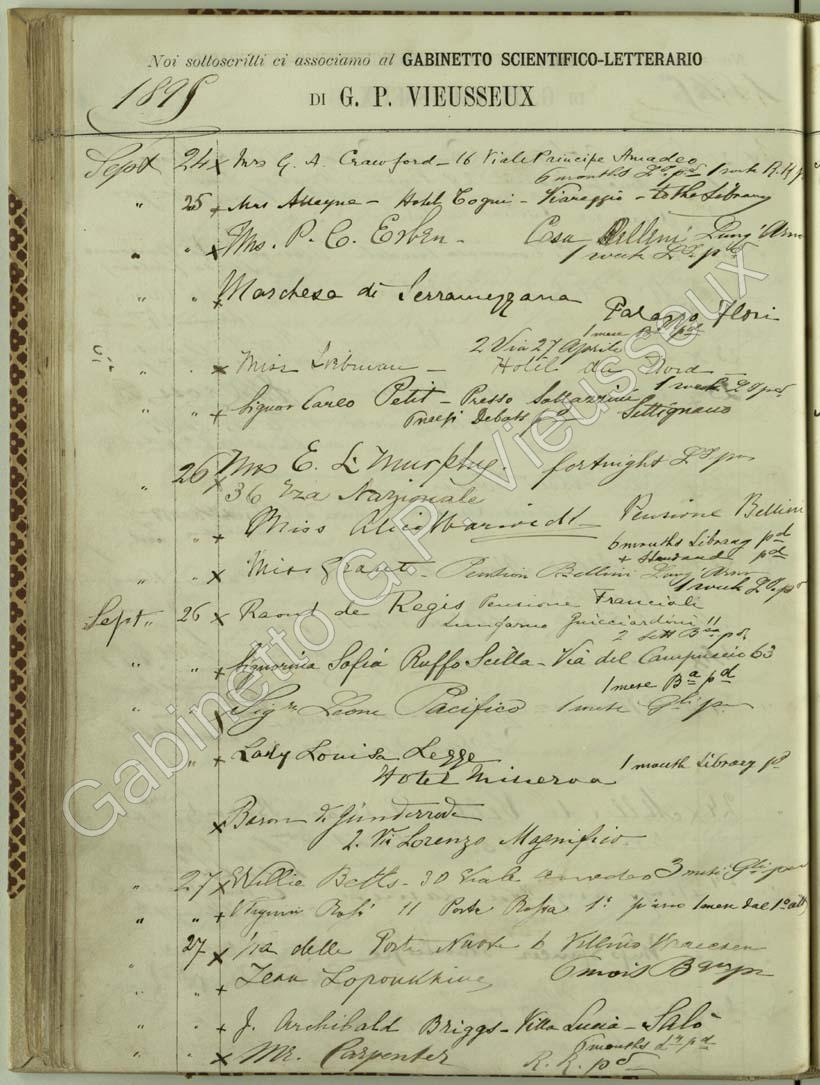 Noi sottoscritti ci associamo al GABINETTO SCIENTIFICO-LETTERARIO
1895
DI G. P. VIEUSSEUX
Sept 24 x Mrs G. A. Crawford - 16 Viale Principe Amadeo
6 months Lº pd 1 week R.R.
" 25 x Mrs Alleyne - Hotel - Viareggio - to the Library
" " x Mrs. P. C. Erben - Casa Bellini Lung'Arno
1 week Lº pd
" " x Marchesa di Serramezzana
Palazzo Flori
1 mese Bª pd
2 Via 27 Aprile
" x Miss - Hotel du Nord -
1 week Lº pd
" " x Signor Carlo Petit - Presso
Debats pd Settignano
" 26 x Mrs E. L. Murphy. fortnight Lº pd
36 Via Nazionale
" " + Miss Alice - Pensione Bellini
6 months Library pd
+ Standard pd
" " x Miss - Pension Bellini Lung'Arno
1 week Lº pd
Sept " 26 x Raoul de Regis Pensione Francioli
Lungarno Guicciardini 11
2 sett Bª pd
" " + Signorina Sofia Ruffo Scilla - Via del Campuccio 63
1 mese Bª pd
" " x Sigr Leone Pacifico 1 mese Gli pd
" + Lady Louisa Legge 1 month Library pd
Hotel Minerva
x Baron d. Günderrode
2. Via Lorenzo Magnifico
" 27 x Willie Betts - 30 Viale Amedeo 3 mesi Gli pd
" " + 11 Porta Rossa 1º piano 1 mese dal 1º
" 27 x Via delle Porte Nuove 6 Villino
" " + Jean Lopoukhine 6 mois
" " + J. Archibald Briggs - Villa Lucia - Salò
6 months dº pd
" " x Mr. Carpenter R. R. pd
Gabinetto G.P. Vieusseux